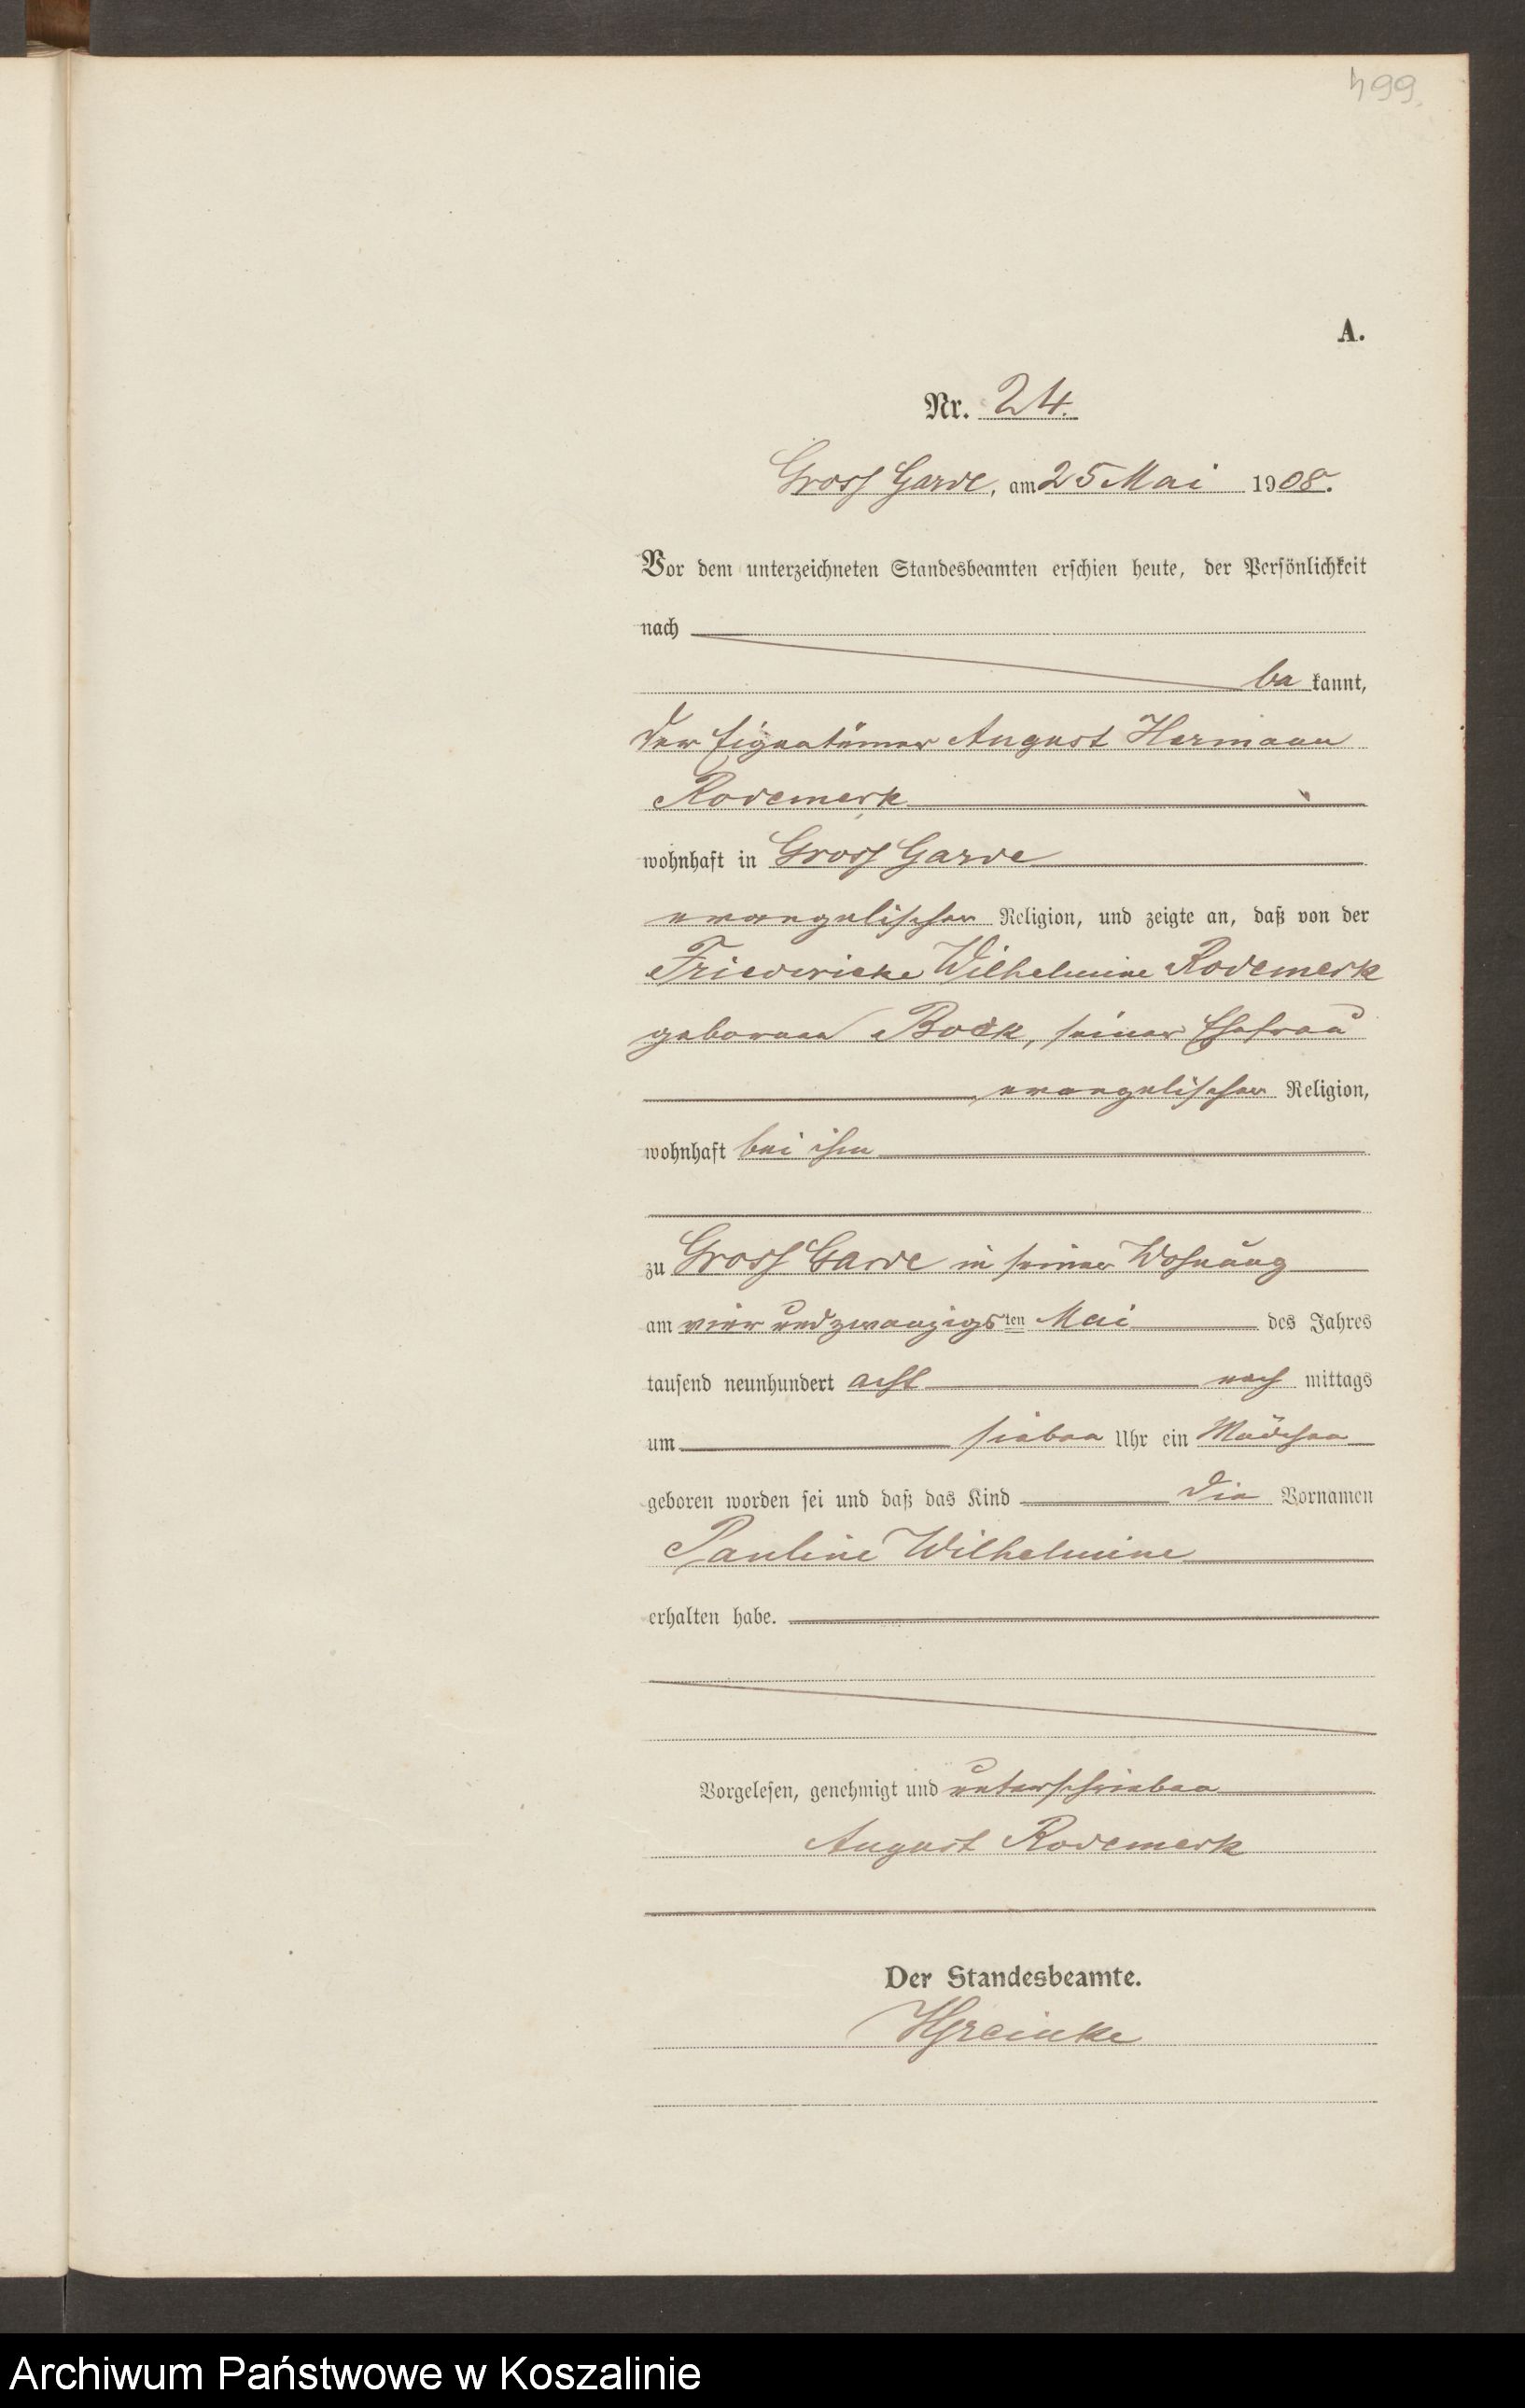 499.
A.
Nr. 24.
Gross Garde, am 25 Mai 1908.
Vor dem unterzeichneten Standesbeamten erschien heute, der Persönlichkeit
nach
be kannt,
der Eigentümer August Hermann
Rodemerk
wohnhaft in Gross Garde
evangelischer Religion, und zeigte an, daß von der
Friedericke Wilhelmine Rodemerk
geborenen Bock, seiner Ehefrau
evangelischer Religion,
wohnhaft bei ihm
zu Gross Garde in seiner Wohnung
am vier und zwanzigsten Mai des Jahres
tausend neunhundert acht nach mittags
um sieben Uhr ein Mädchen
geboren worden sei und daß das Kind die Vornamen
Pauline Wilhelmine
erhalten habe.
Vorgelesen, genehmigt und unterschrieben
August Rodemerk
Der Standesbeamte.
Archiwum Państwowe w Koszalinie